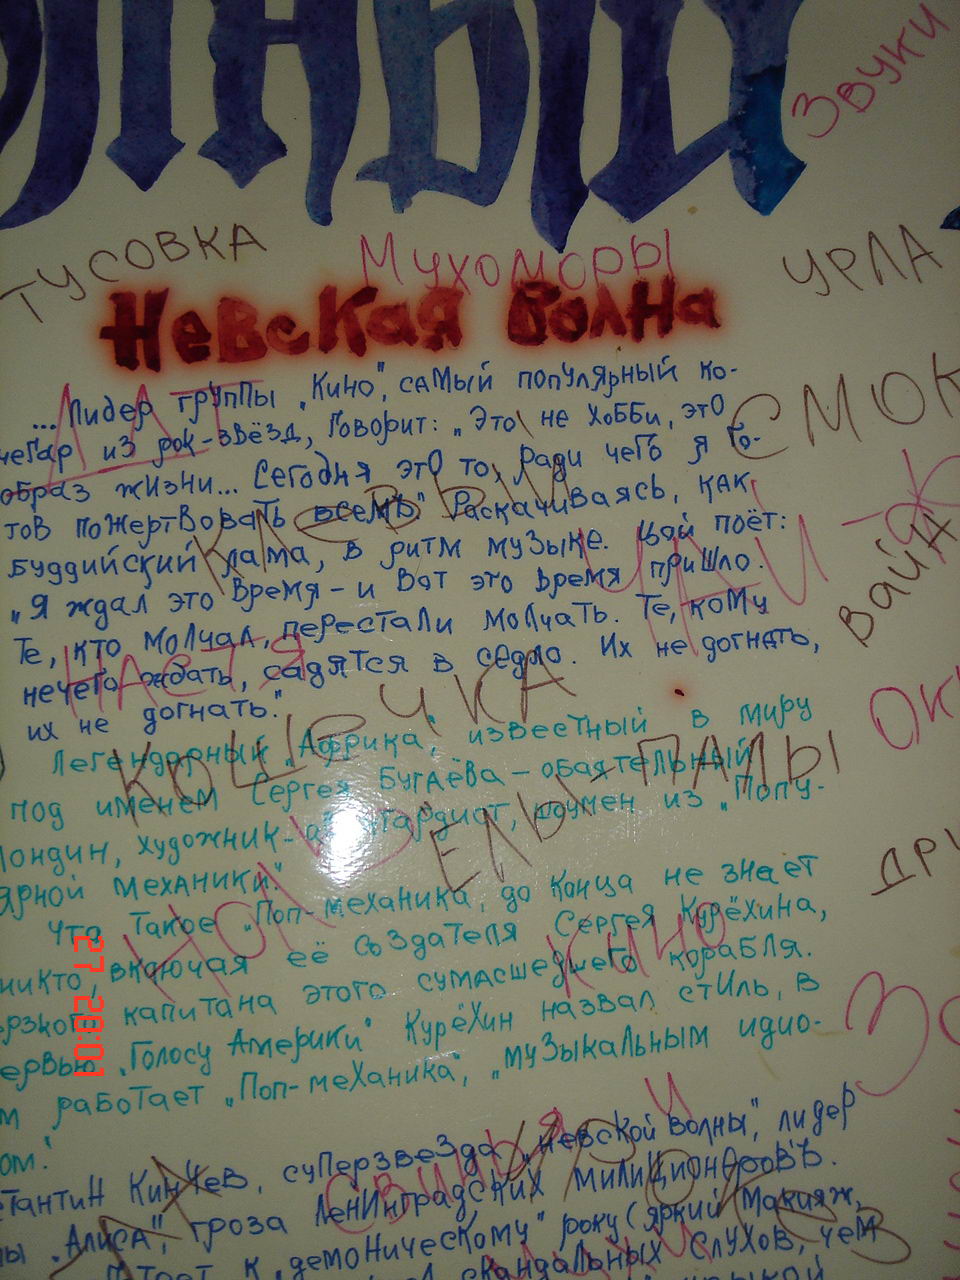 Звуки
ТУСОВКА
Мухоморы
УРЛА
Невская волна
...Лидер группы „Кино", самый популярный ко-
чегар из рок-звёзд, говорит: „Это не хобби, это
СМОК
образ жизни... Сегодня это то, ради чего я го-
тов пожертвовать всемъ" Раскачиваясь, как
буддийский лама, в ритм музыке. Цой поёт:
„Я ждал это время – и вот это время пришло.
ВАЙА
Те, кто молчал, перестали молчать. Те, кому
нечего ждать, садятся в седло. Их не догнать,
их не догнать."
НАСТЯ
КОШЕЧКА
Легендарный „Африка", известный в миру
под именем Сергея Бугаёва – обаятельный
ЕЛЫ-ПАЛЫ
лондин, художник-авангардист, шумен из „Попу-
ярной механики."
ДРУ
Что такое „Поп-механика, до конца не знает
никто, включая её создателя Сергея Курёхина,
НОЛЬ
КИНО
ерзкого капитана этого сумасшедшего корабля.
ервью „Голосу Америки" Курёхин назвал стиль, в
м работает „Поп-механика", „музыкальным идио-
ом."
27 20:01
тантин Кинчев, суперзвезда „Невской волны", лидер
ы „Алиса", гроза Ленинградских милиционеровъ.
к „демоническому" року (яркий макияж,
скандальных слухов, чем